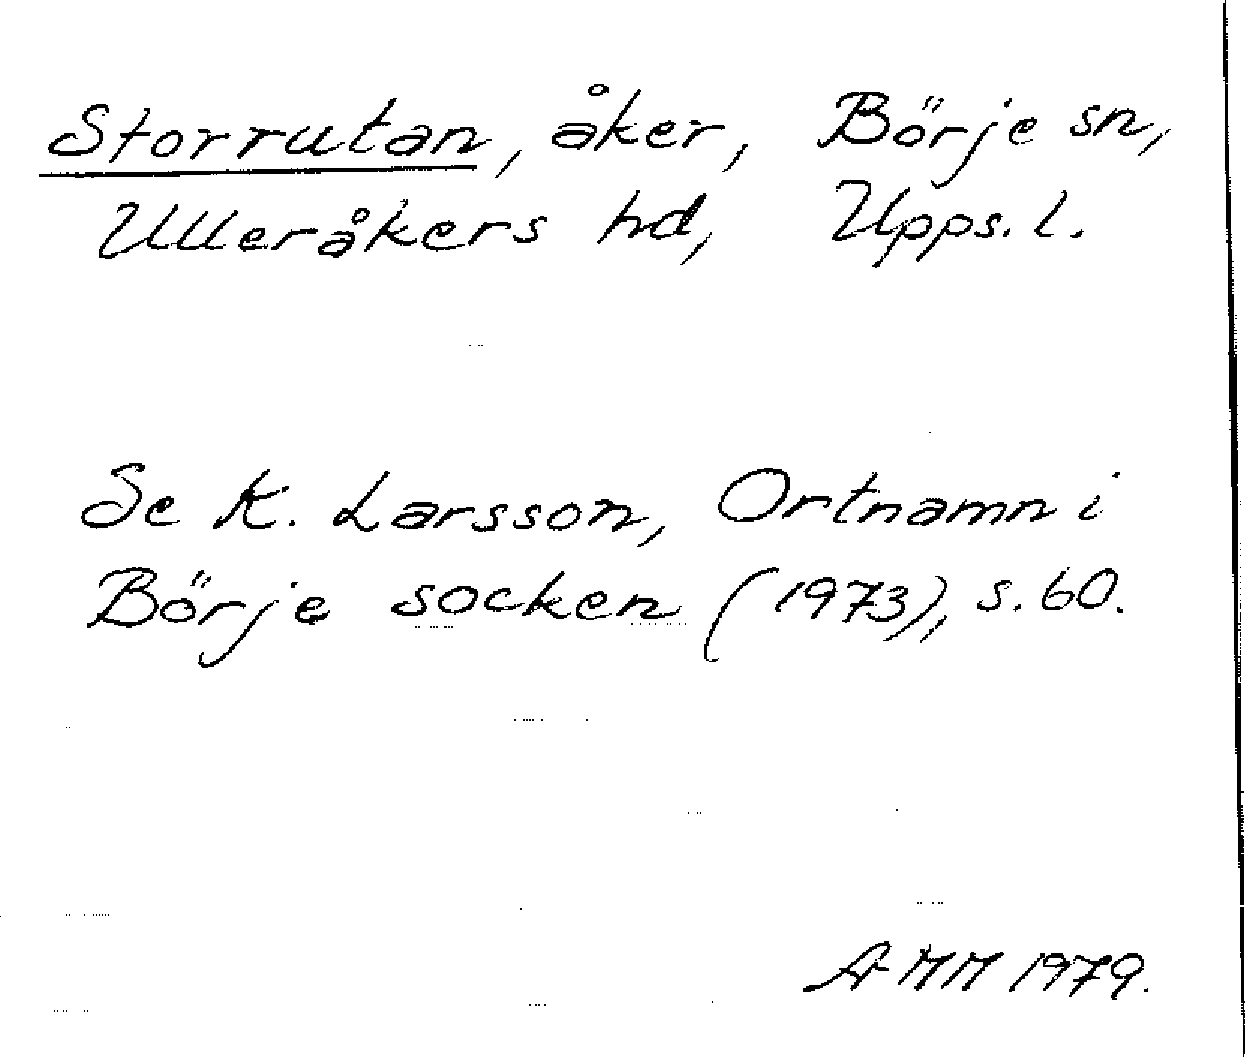 Storrutan, åker, Börje sn,
Ulleråkers hd, Upps. l.
Se K. Larsson, Ortnamn i
Börje socken (1973), s. 60.
AMM 1979.